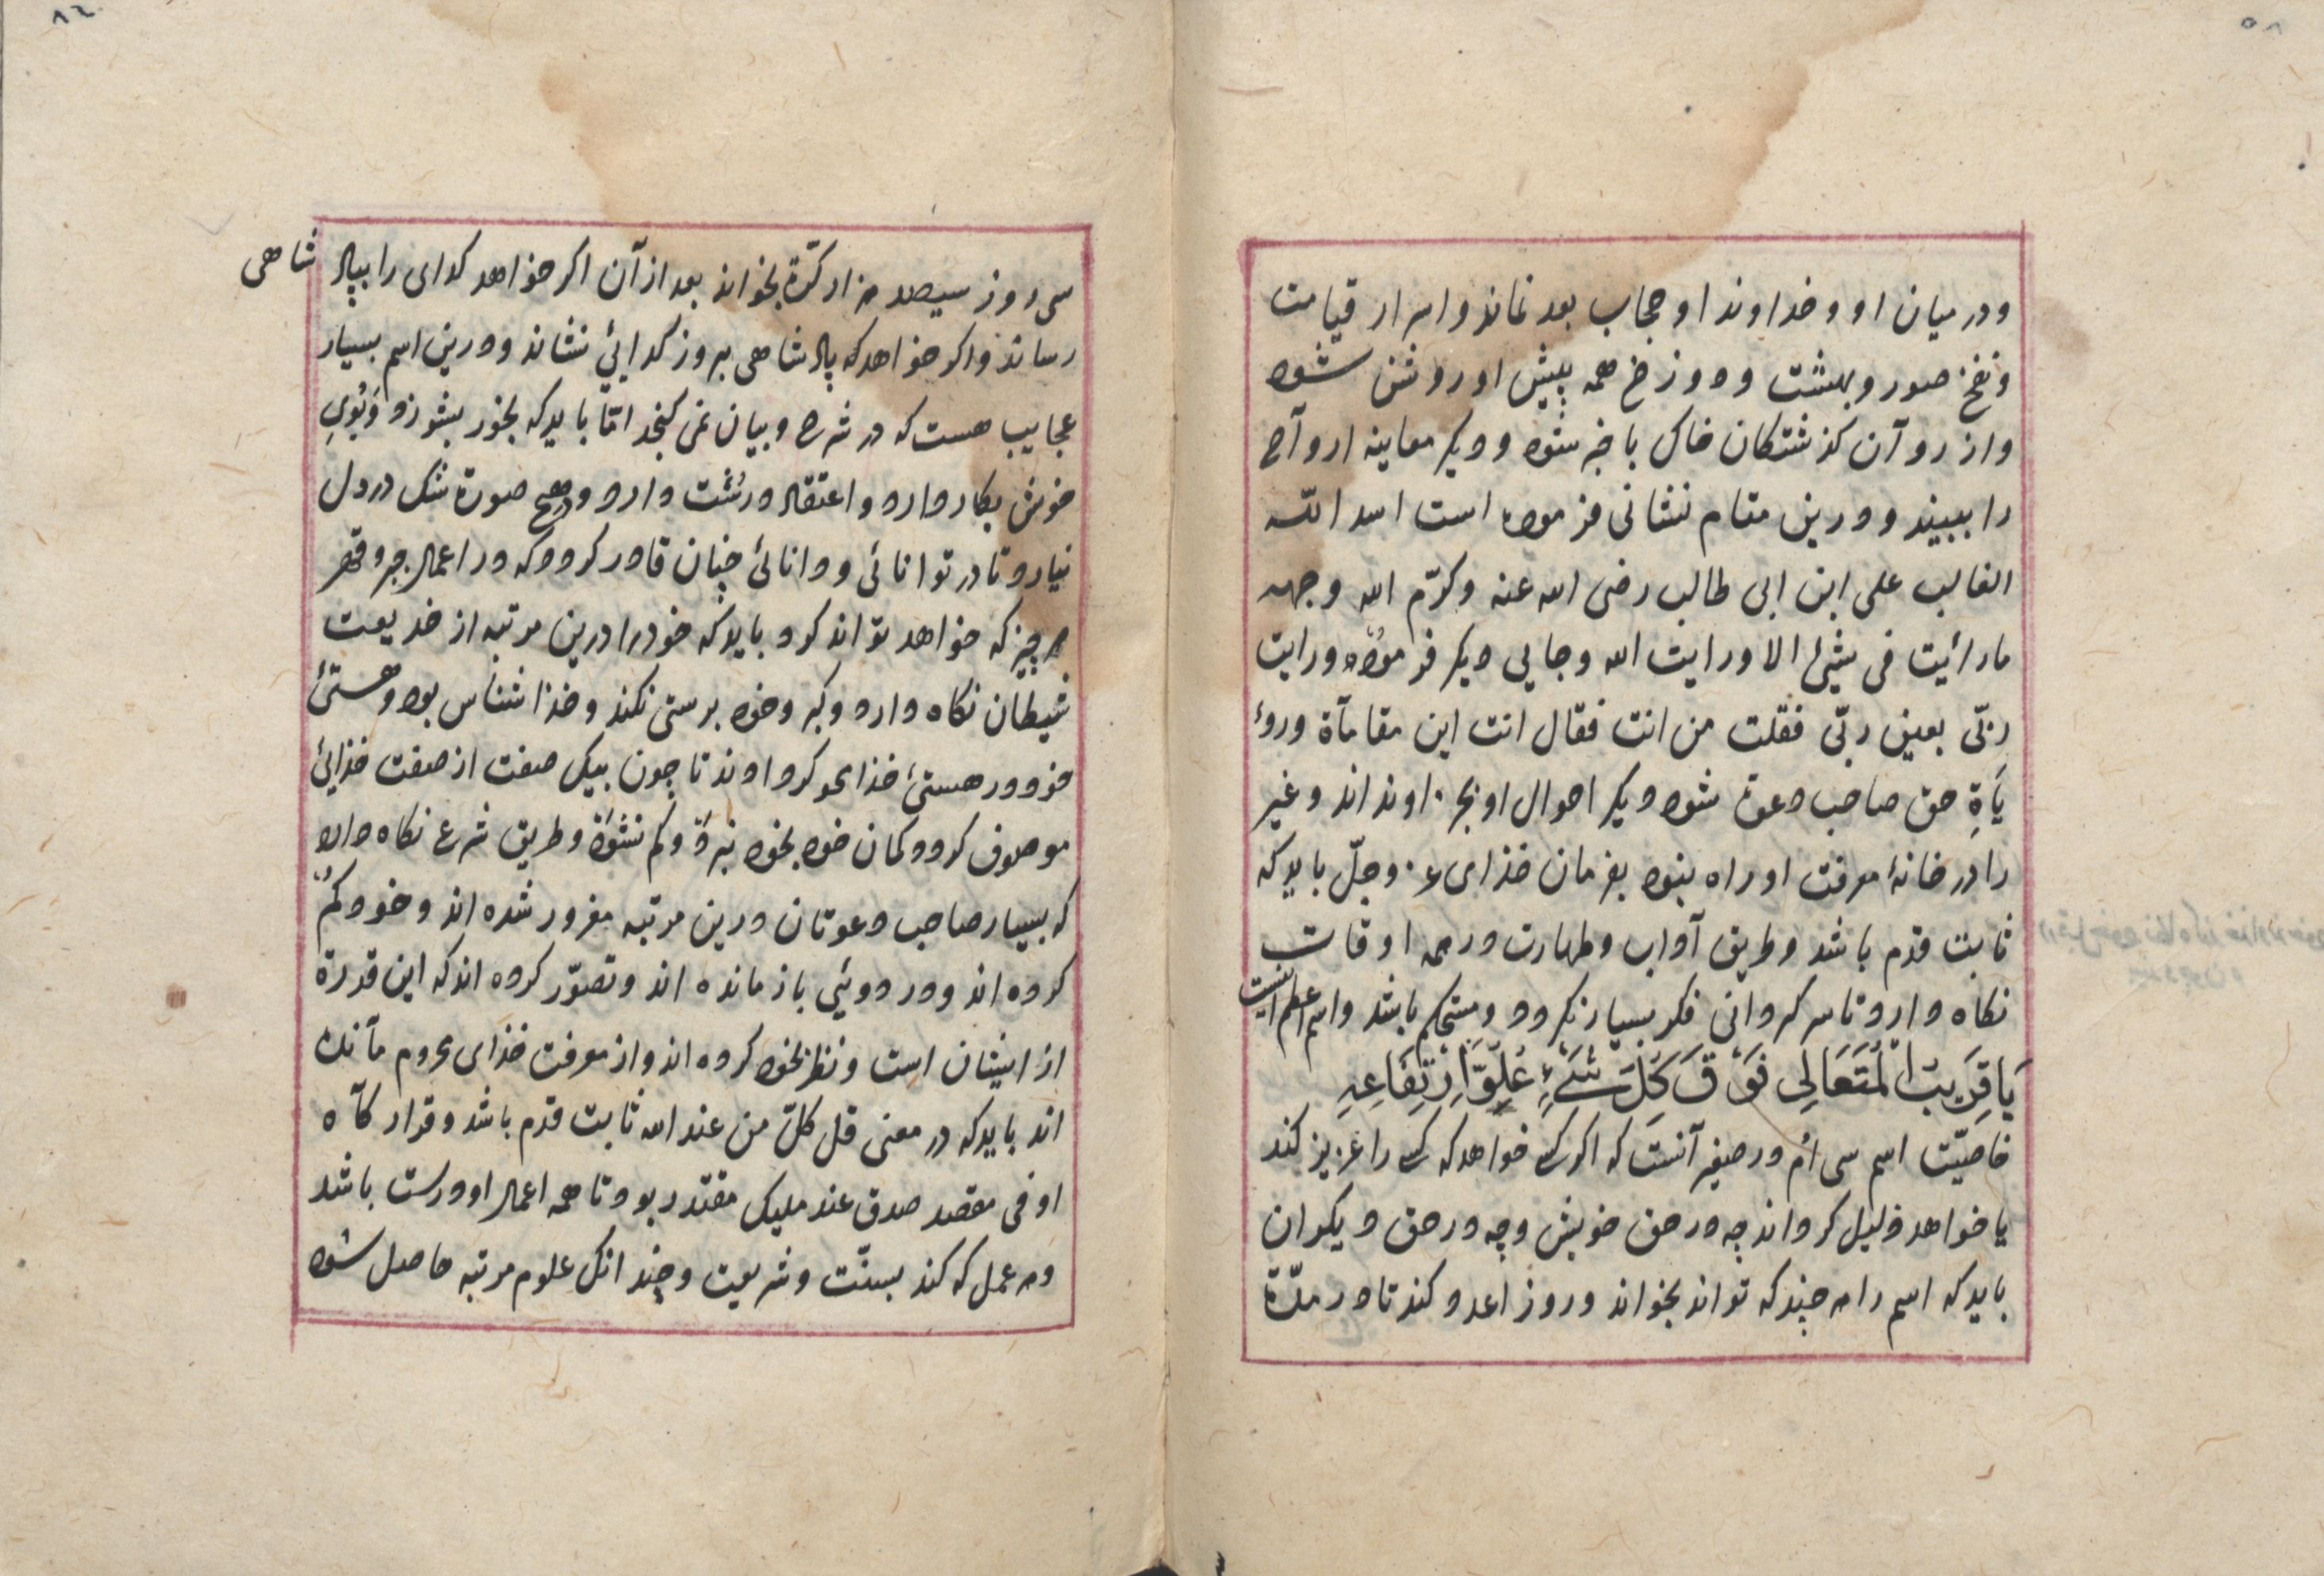 ودر میان او و خداوند او حجاب بعد نماند و اسرار قیامت
و نفخ صور و بهشت و دوزخ همه پیش او روشن شود
و از روآن کذشتکان خاک با خبر شود و دیکر معاینه اروآح
را ببیند و درین مقام نشانی فرموده است اسد اللّه
الغالب علی ابن ابی طالب رضی الله عنه وکرّم الله وجهه
ما رائیت فی شیئ الا ورایت الله و جایی دیکر فرموده ورایت
ربّی بعین ربّی فقلت من انت فقال انت این مقامآة و روءِ
یاَةِ حق صاحب دعوة شود دیکر احوال او بجز اونداند و غیر
را در خانهٔ معرفت او راه نبود بفرمان خذای عز وجلّ باید که
ثابت قدم باشد و طریق آداب و طهارت در همه اوقات
نکاه دارد تا سرکردانی فکر بسیار نکردد و مستحکم باشد و اسم اعظم اینست
یَا قَرِیبَ الْمُتَعَالِی فَوْقَ کُلِّ شَیْءٍ عُلُوَّ اِرْتِفَاعِهِ
خاصیّت اسم سی اُم در صغیر آنست که اکر کسی خواهد که کسی را عزیز کند
یا خواهد ذلیل کرداند چه در حق خویش و چه در حق دیکران
باید که اسم را هر چند که تواند بخواند و روز اعدد کند تا در مدّة
سی روز سیصد هزار کرّة بخواند بعد از آن اکر خواهد کدای را بپاد شاهی
رساند و اکر خواهد که پادشاهی بروز کدایئ نشاند و درین اسم بسیار
عجایب هست که در شرح و بیان نمی کنجد امّا باید که بخور بسوزد و بَوُیِ
خوش بکار دارد و اعتقاد درُسُت دارد و هیچ صورة شک در دل
نیارد تا در توانائی و دانائی چنان قادر کردد که در اعمال جر و قهر
هر چیز که خواهد تواند کرد باید که خود را درین مرتبه از خدیعت
شیطان نکاه دارد و کبر و خود پرستی نکند و خذا شناس بود و هستیٔ
خود در هستیٔ خذا محو کرداوند تا چون بیک صفت از صفت خذایئ
موصوف کردد کمان خود بخود نبرَدَ و کم نشوَدَ و طریق شرع نکاه دارد
که بسیار صاحب دعوتان درین مرتبه مغرور شده اند و خود کُم
کرده اند و در دویئی باز مانده اند و تصوّر کرده اند که این قدرة
از اینشان است و نظر بخود کرده اند و از معرفت خذای محروم مآنده
اند باید که در معنی قل کلّ من عند الله ثابت قدم باشد و قرار کآه
او فی مقصد صدق عند ملیک مقتدر بود تا همه اعمال او درست باشد
و هر عمل که کند بسنّت و شریعت و چند انک علوم مرتبه حاصل شود